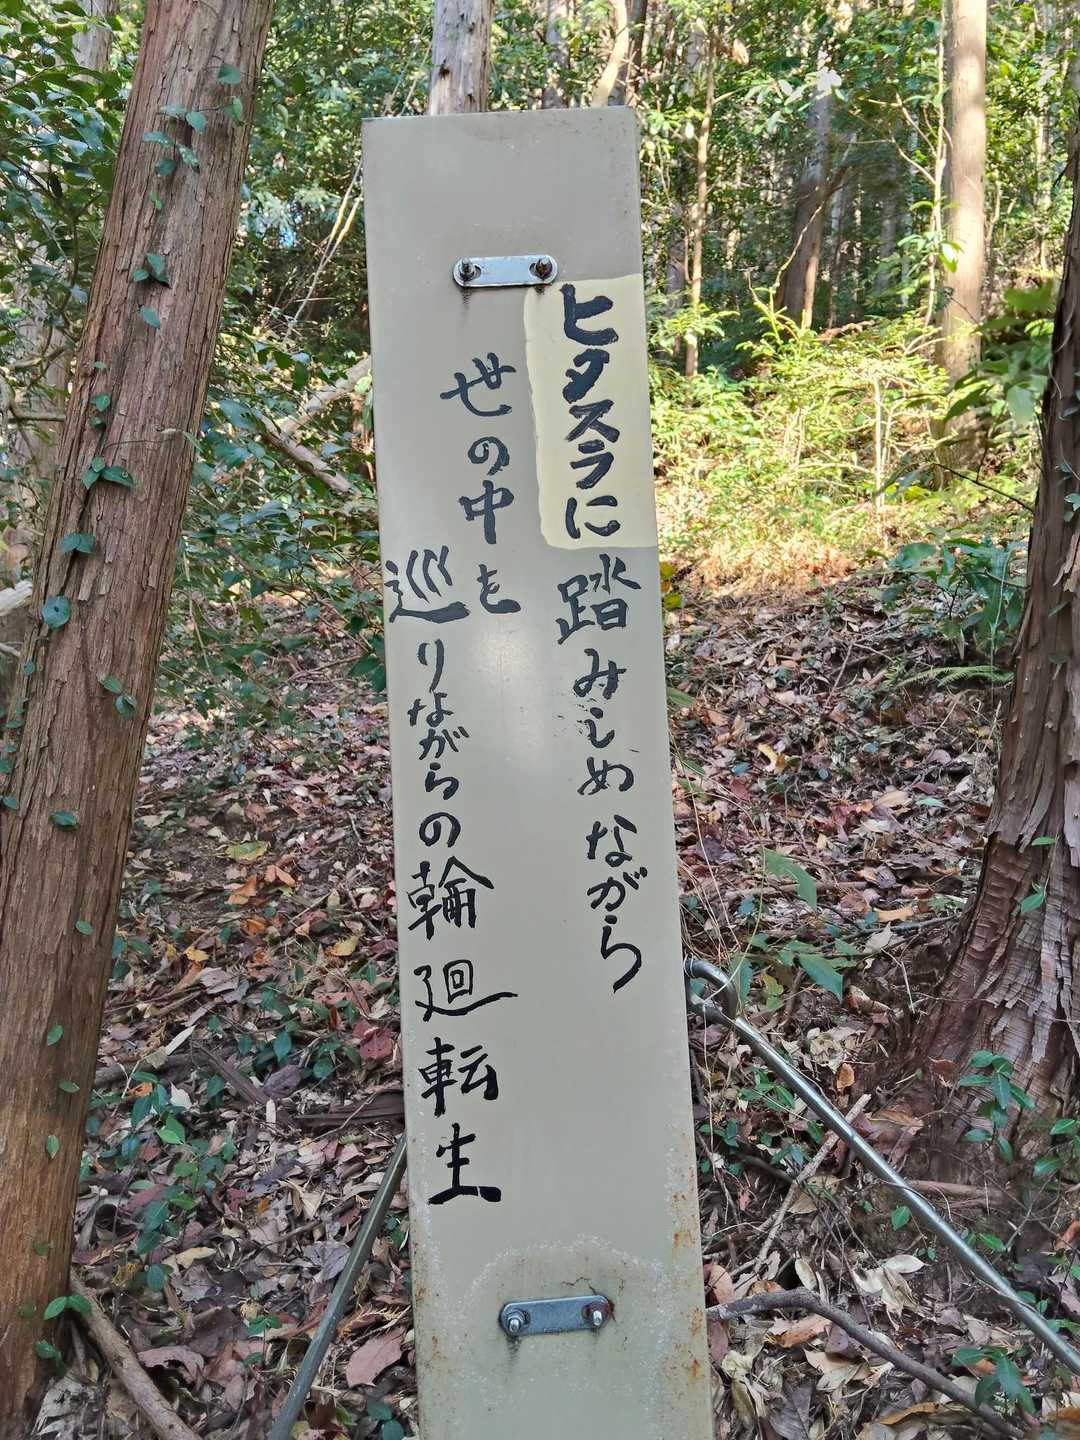 ヒタスラに踏みしめながら
世の中を
巡りながらの輪廻転生